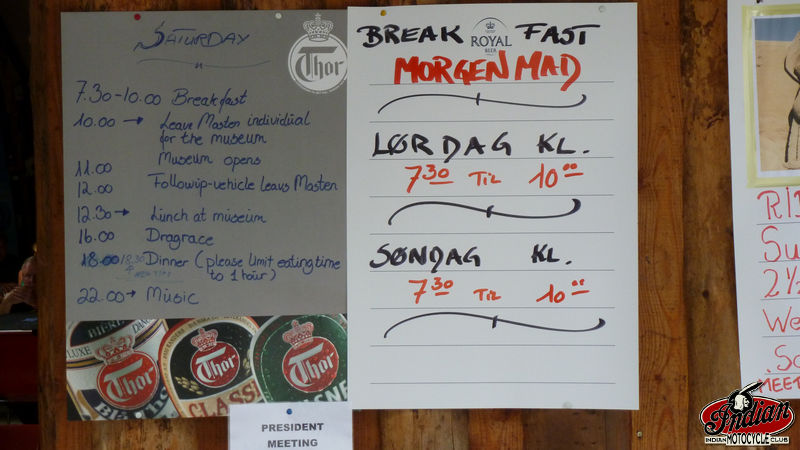 SATURDAY
Thor
7.30-10.00 Breakfast
10.00 → Leave Masten individual
for the museum
11.00 Museum opens
12.00 Followip-vehicle leavs Masten
12.30 → Lunch at museum
16.00 Dragrace
18.00/18.30 Dinner (please limit eating time
to 1 hour)
22.00 → Music
BREAK FAST
ROYAL
BEER
MORGENMAD
LØRDAG KL.
7 30 TIL 10 00
SØNDAG KL.
7 30 TIL 10 00
Thor
Thor
Thor
CLASS
PRESIDENT
MEETING
RI
Su
2½
We
So
MEET
Indian
INDIAN MOTOCYCLE CLUB